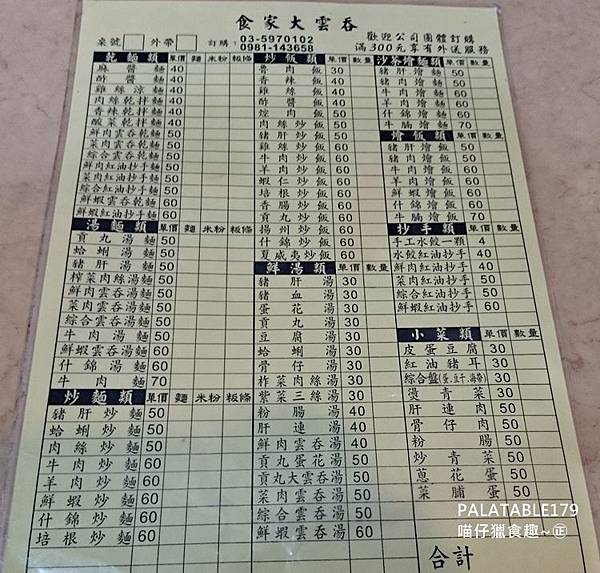 食家大雲吞
桌號 外帶 訂購: 03-5970102
0981-143658
歡迎公司團體訂購
滿300元享有外送服務
乾麵類 單價 麵 米粉 粄條
麻醬麵 40
酢醬麵 40
雞絲涼麵 40
肉絲乾拌麵 40
香辣乾拌麵 40
酸菜乾拌麵 40
鮮肉雲吞乾麵 50
菜肉雲吞乾麵 50
綜合雲吞乾麵 50
鮮肉紅油抄手麵 50
菜肉紅油抄手麵 50
綜合紅油抄手麵 50
鮮蝦雲吞乾麵 60
鮮蝦紅油抄手麵 60
湯麵類 單價 麵 米粉 粄條
貢丸湯麵 50
蛤蜊湯麵 50
豬肝湯麵 50
榨菜肉絲湯麵 50
鮮肉雲吞湯麵 50
菜肉雲吞湯麵 50
綜合雲吞湯麵 50
牛肉湯麵 50
鮮蝦雲吞湯麵 60
什錦湯麵 60
牛肉麵 70
炒麵類 單價 麵 米粉 粄條
豬肝炒麵 50
蛤蜊炒麵 50
肉絲炒麵 50
牛肉炒麵 60
羊肉炒麵 60
鮮蝦炒麵 60
什錦炒麵 60
培根炒麵 60
炒飯類 單價 數量
魯肉飯 30
香辣飯 40
雞絲飯 40
酢醬飯 40
焢肉飯
肉絲炒飯 50
豬肝炒飯 50
雞絲炒飯 60
牛肉炒飯 60
羊肉炒飯 60
蝦仁炒飯 60
培根炒飯 60
香腸炒飯 60
貢丸炒飯 60
揚州炒飯 60
什錦炒飯 60
夏威夷炒飯 60
鮮湯類 單價 數量
豬肝湯 30
豬血湯 30
蛋花湯 30
貢丸湯 30
豆腐湯 30
蛤蜊湯 30
骨仔湯 30
柞菜肉絲湯 30
紫菜三絲湯 30
粉腸湯 40
肝連湯 40
鮮肉雲吞湯 40
貢丸蛋花湯 50
貢丸大雲吞湯 50
菜肉雲吞湯 50
綜合雲吞湯 50
鮮蝦雲吞湯 60
沙茶燴麵類 單價 數量
豬肝燴麵 50
豬肉燴麵 50
牛肉燴麵 60
羊肉燴麵 60
什錦燴麵 60
牛腩燴麵 70
燴飯類 單價 數量
豬肝燴飯 50
豬肉燴飯 50
牛肉燴飯 60
羊肉燴飯 60
什錦燴飯 60
牛腩燴飯 70
抄手類 單價 數量
手工水餃一顆 4
水餃紅油抄手 40
鮮肉紅油抄手 40
菜肉紅油抄手 50
綜合紅油抄手 50
鮮蝦紅油抄手 60
小菜類 單價 數量
皮蛋豆腐 30
紅油豬耳 30
綜合盤(蛋.豆干.海帶) 30
燙青菜 30
肝連肉 50
骨仔肉 50
粉腸 50
炒青菜 50
蔥花蛋 50
菜脯蛋 50
合計
PALATABLE179
喵仔獵食趣~㊣